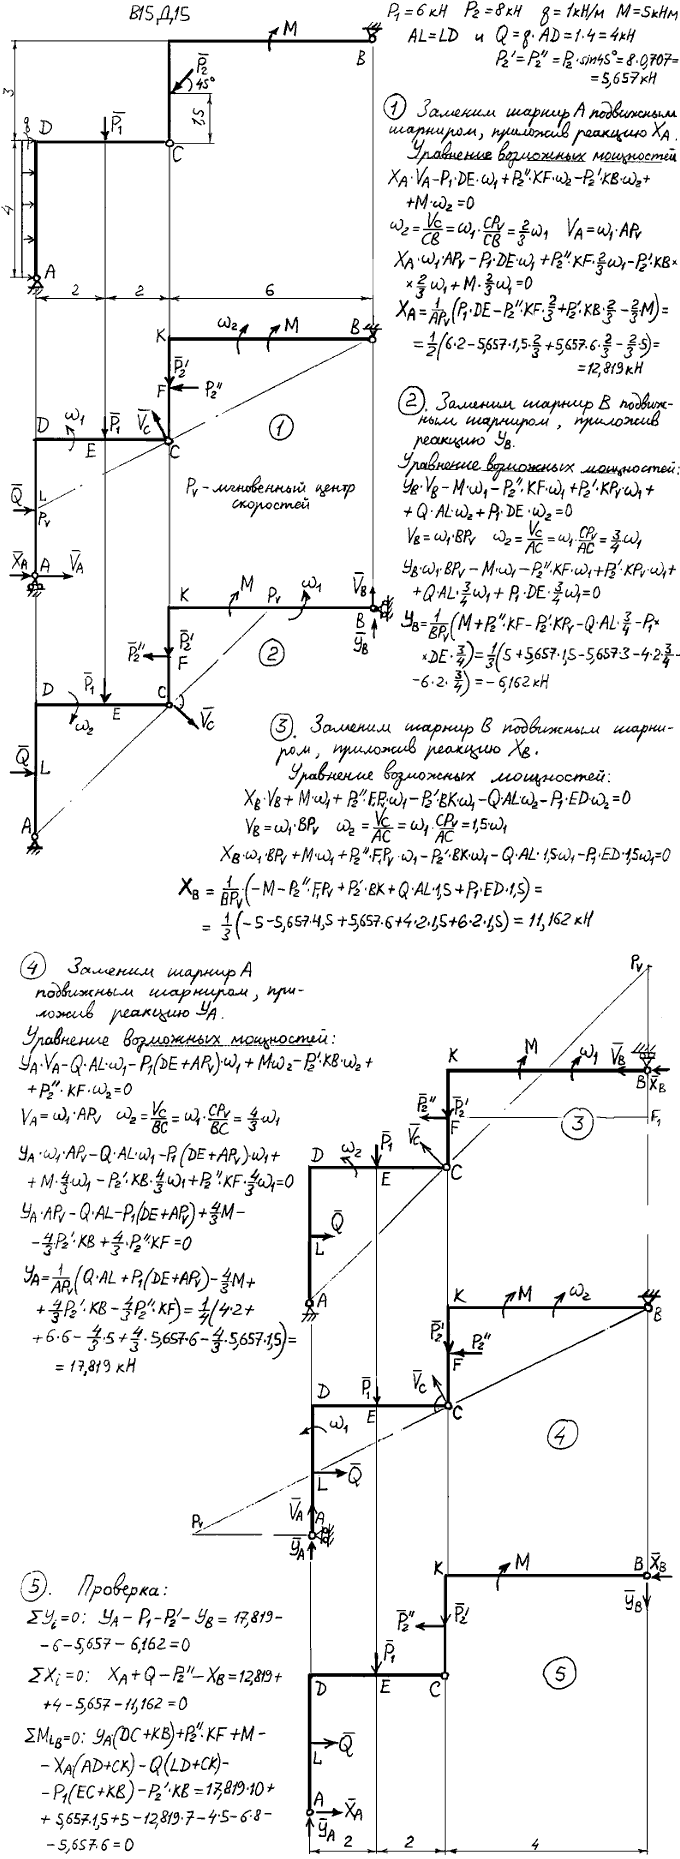 В15 Д15
P₁=6кН P₂=8кН q=1кН/м M=5кНм
AL=LD и Q=q·AD=1·4=4кН
P₂'=P₂''=P₂·sin45°=8·0,707=
=5,657кН
M
B
P̄₂
45°
1,5
3
q
D
P̄₁
C
4
A
2
2
6
① Заменим шарнир A подвижным
шарниром, приложив реакцию X_A.
Уравнение возможных мощностей
X_A·V_A-P₁·DE·ω₁+P₂''·KF·ω₂-P₂'·KB·ω₂+
+M·ω₂=0
ω₂=V_C/CB=ω₁·CP_V/CB=2/3ω₁ V_A=ω₁·AP_V
X_A·ω₁·AP_V-P₁·DE·ω₁+P₂''·KF·2/3ω₁-P₂'·KB×
×2/3ω₁+M·2/3ω₁=0
X_A=1/AP_V(P₁·DE-P₂''·KF·2/3+P₂'·KB·2/3-2/3M)=
=1/2(6·2-5,657·1,5·2/3+5,657·6·2/3-2/3·5)=
=12,819кН
K
ω₂
M
B
P̄₂'
F
P₂''
①
D
ω₁
P̄₁
V̄_C
E
C
Q̄
L
P_V
P_V-мгновенный центр
скоростей
X̄_A
A
V̄_A
② Заменим шарнир B подвиж-
ным шарниром, приложив
реакцию Y_B.
Уравнение возможных мощностей:
Y_B·V_B-M·ω₁-P₂''·KF·ω₁+P₂'·KP_V·ω₁+
+Q·AL·ω₂+P₁·DE·ω₂=0
V_B=ω₁·BP_V ω₂=V_C/AC=ω₁·CP_V/AC=3/4ω₁
Y_B·ω₁·BP_V-M·ω₁-P₂''·KF·ω₁+P₂'·KP_V·ω₁+
+Q·AL·3/4ω₁+P₁·DE·3/4ω₁=0
Y_B=1/BP_V(M+P₂''·KF-P₂'·KP_V-Q·AL·3/4-P₁×
×DE·3/4)=1/3(5+5,657·1,5-5,657·3-4·2·3/4-
-6·2·3/4)=-6,162кН
K
M
P_V
ω₁
V̄_B
B
Ȳ_B
P̄₂''
P̄₂'
F
②
D
P̄₁
E
C
ω₂
V̄_C
Q̄
L
A
③. Заменим шарнир B подвижным шарни-
ром, приложив реакцию X_B.
Уравнение возможных мощностей:
X_B·V_B+M·ω₁+P₂''·F₁P_V·ω₁-P₂'·BK·ω₁-Q·AL·ω₂-P₁·ED·ω₂=0
V_B=ω₁·BP_V ω₂=V_C/AC=ω₁·CP_V/AC=1,5ω₁
X_B·ω₁·BP_V+M·ω₁+P₂''·F₁P_V·ω₁-P₂'·BK·ω₁-Q·AL·1,5ω₁-P₁·ED·1,5ω₁=0
X_B=1/BP_V·(-M-P₂''·F₁P_V+P₂'·BK+Q·AL·1,5+P₁·ED·1,5)=
=1/3(-5-5,657·4,5+5,657·6+4·2·1,5+6·2·1,5)=11,162кН
④ Заменим шарнир A
подвижным шарниром, при-
ложив реакцию Y_A.
Уравнение возможных мощностей:
Y_A·V_A-Q·AL·ω₁-P₁(DE+AP_V)·ω₁+Mω₂-P₂'·KB·ω₂+
+P₂''·KF·ω₂=0
V_A=ω₁·AP_V ω₂=V_C/BC=ω₁·CP_V/BC=4/3ω₁
Y_A·ω₁·AP_V-Q·AL·ω₁-P₁(DE+AP_V)·ω₁+
+M·4/3ω₁-P₂'·KB·4/3ω₁+P₂''·KF·4/3ω₁=0
Y_A·AP_V-Q·AL-P₁(DE+AP_V)+4/3M-
-4/3P₂'·KB+4/3·P₂''KF=0
Y_A=1/AP_V(Q·AL+P₁(DE+AP_V)-4/3M+
+4/3P₂'·KB-4/3P₂''·KF)=1/4(4·2+
+6·6-4/3·5+4/3·5,657·6-4/3·5,657·1,5)=
=17,819кН
P_V
K
M
ω₁
V̄_B
B
X̄_B
P̄₂''
P̄₂'
F
③
F₁
V̄_C
D
ω₂
P̄₁
E
C
Q̄
L
A
K
M
ω₂
B
P̄₂'
P₂''
F
D
P̄₁
V̄_C
E
C
ω₁
④
L
Q̄
P_V
V̄_A
A
Ȳ_A
⑤. Проверка:
ΣY_i=0: Y_A-P₁-P₂'-Y_B=17,819-
-6-5,657-6,162=0
ΣX_i=0: X_A+Q-P₂''-X_B=12,819+
+4-5,657-11,162=0
ΣM_iB=0: Y_A(DC+KB)+P₂''·KF+M-
-X_A(AD+CK)-Q(LD+CK)-
-P₁(EC+KB)-P₂'·KB=17,819·10+
+5,657·1,5+5-12,819·7-4·5-6·8-
-5,657·6=0
K
M
B
X̄_B
Ȳ_B
P̄₂''
P̄₂'
D
P̄₁
E
C
⑤
L
Q̄
A
X̄_A
Ȳ_A
2
2
4